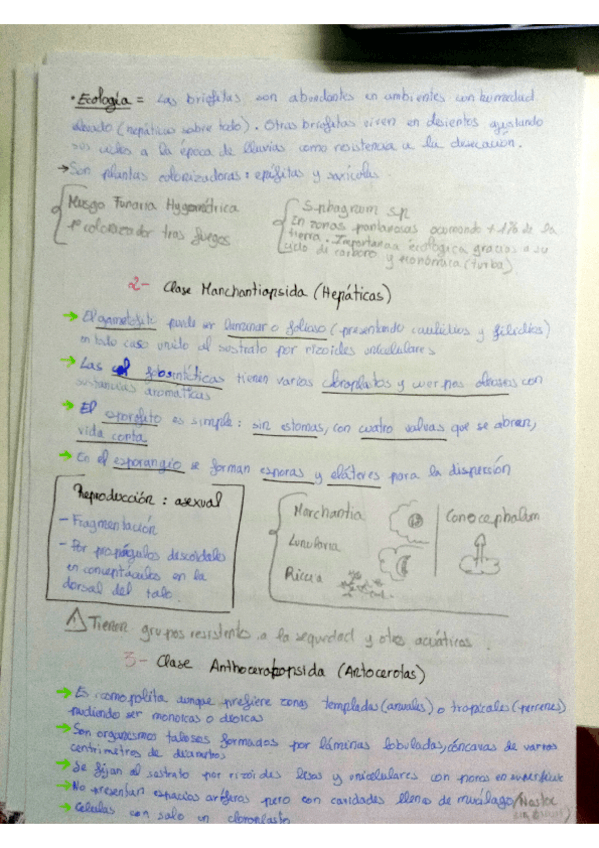 • Ecología = Las briofitas son abundantes en ambientes con humedad
elevado (hepáticas sobre todo). Otras briofitas viven en desiertos ajustando
sus ciclos a la época de lluvias como resistencia a la desecación.
→ Son plantas colonizadoras: epífitas y saxícolas
Musgo Funaria Hygrométrica
1º colonizador tras fuegos
Sphagnum sp
En zonas pantanosas ocupando +1% de la
tierra. Importancia ecológica gracias a su
ciclo de carbono y económica (turba)
2- Clase Marchantiopsida (Hepáticas)
→ El gametofito puede ser laminar o folioso (presentando caulidios y filidios)
en todo caso unido al sustrato por rizoides unicelulares
→ Las fotosintéticas tienen varios cloroplastos y cuerpos oleosos con
sustancias aromáticas
→ El esporofito es simple: sin estomas, con cuatro valvas que se abren,
vida corta
→ En el esporangio se forman esporas y eláteres para la dispersión
Reproducción: asexual
- Fragmentación
- Por propágulos discoidales
en conceptáculos en la
dorsal del talo.
Marchantia
Lunularia
Riccia
Conocephalum
⚠ Tienen grupos resistentes a la sequedad y otros acuáticos.
3- Clase Anthoceropsida (Antocerotas)
→ Es cosmopolita aunque prefiere zonas templadas (anuales) o tropicales (perennes)
pudiendo ser monoicas o dioicas
→ Son organismos talosos formados por láminas lobuladas, cóncavas de varios
centímetros de diámetro
→ Se fijan al sustrato por rizoides lisos y unicelulares con poros en superficie
→ No presentan espacios aeríferos pero con cavidades llenas de mucílago (Nostoc
→ Células con solo un cloroplasto